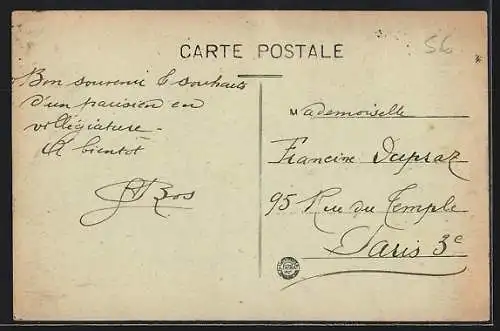 CARTE POSTALE
56
Bon souvenir & souhaits
d'un parisien en
villégiature -
A bientot
Bos
Mademoiselle
Francine Dupraz
95 Rue du Temple
Paris 3e